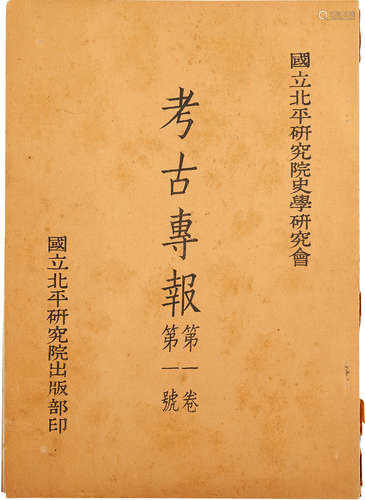 國立北平研究院史學研究會
考古專報
第一卷
第一號
國立北平研究院出版部印